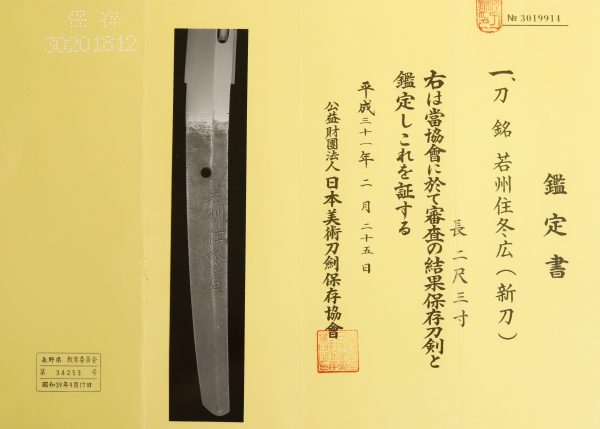 № 3019914
鑑定書
一、刀 銘 若州住冬広(新刀)
長 二尺三寸
右は當協會に於て審査の結果保存刀剣と
鑑定しこれを証する
平成三十一年 二月 二十五日
公益財團法人 日本美術刀劍保存協會
保存
30201812
若州住冬廣
長野県 教育委員会
第 34253 号
昭和39年9月17日